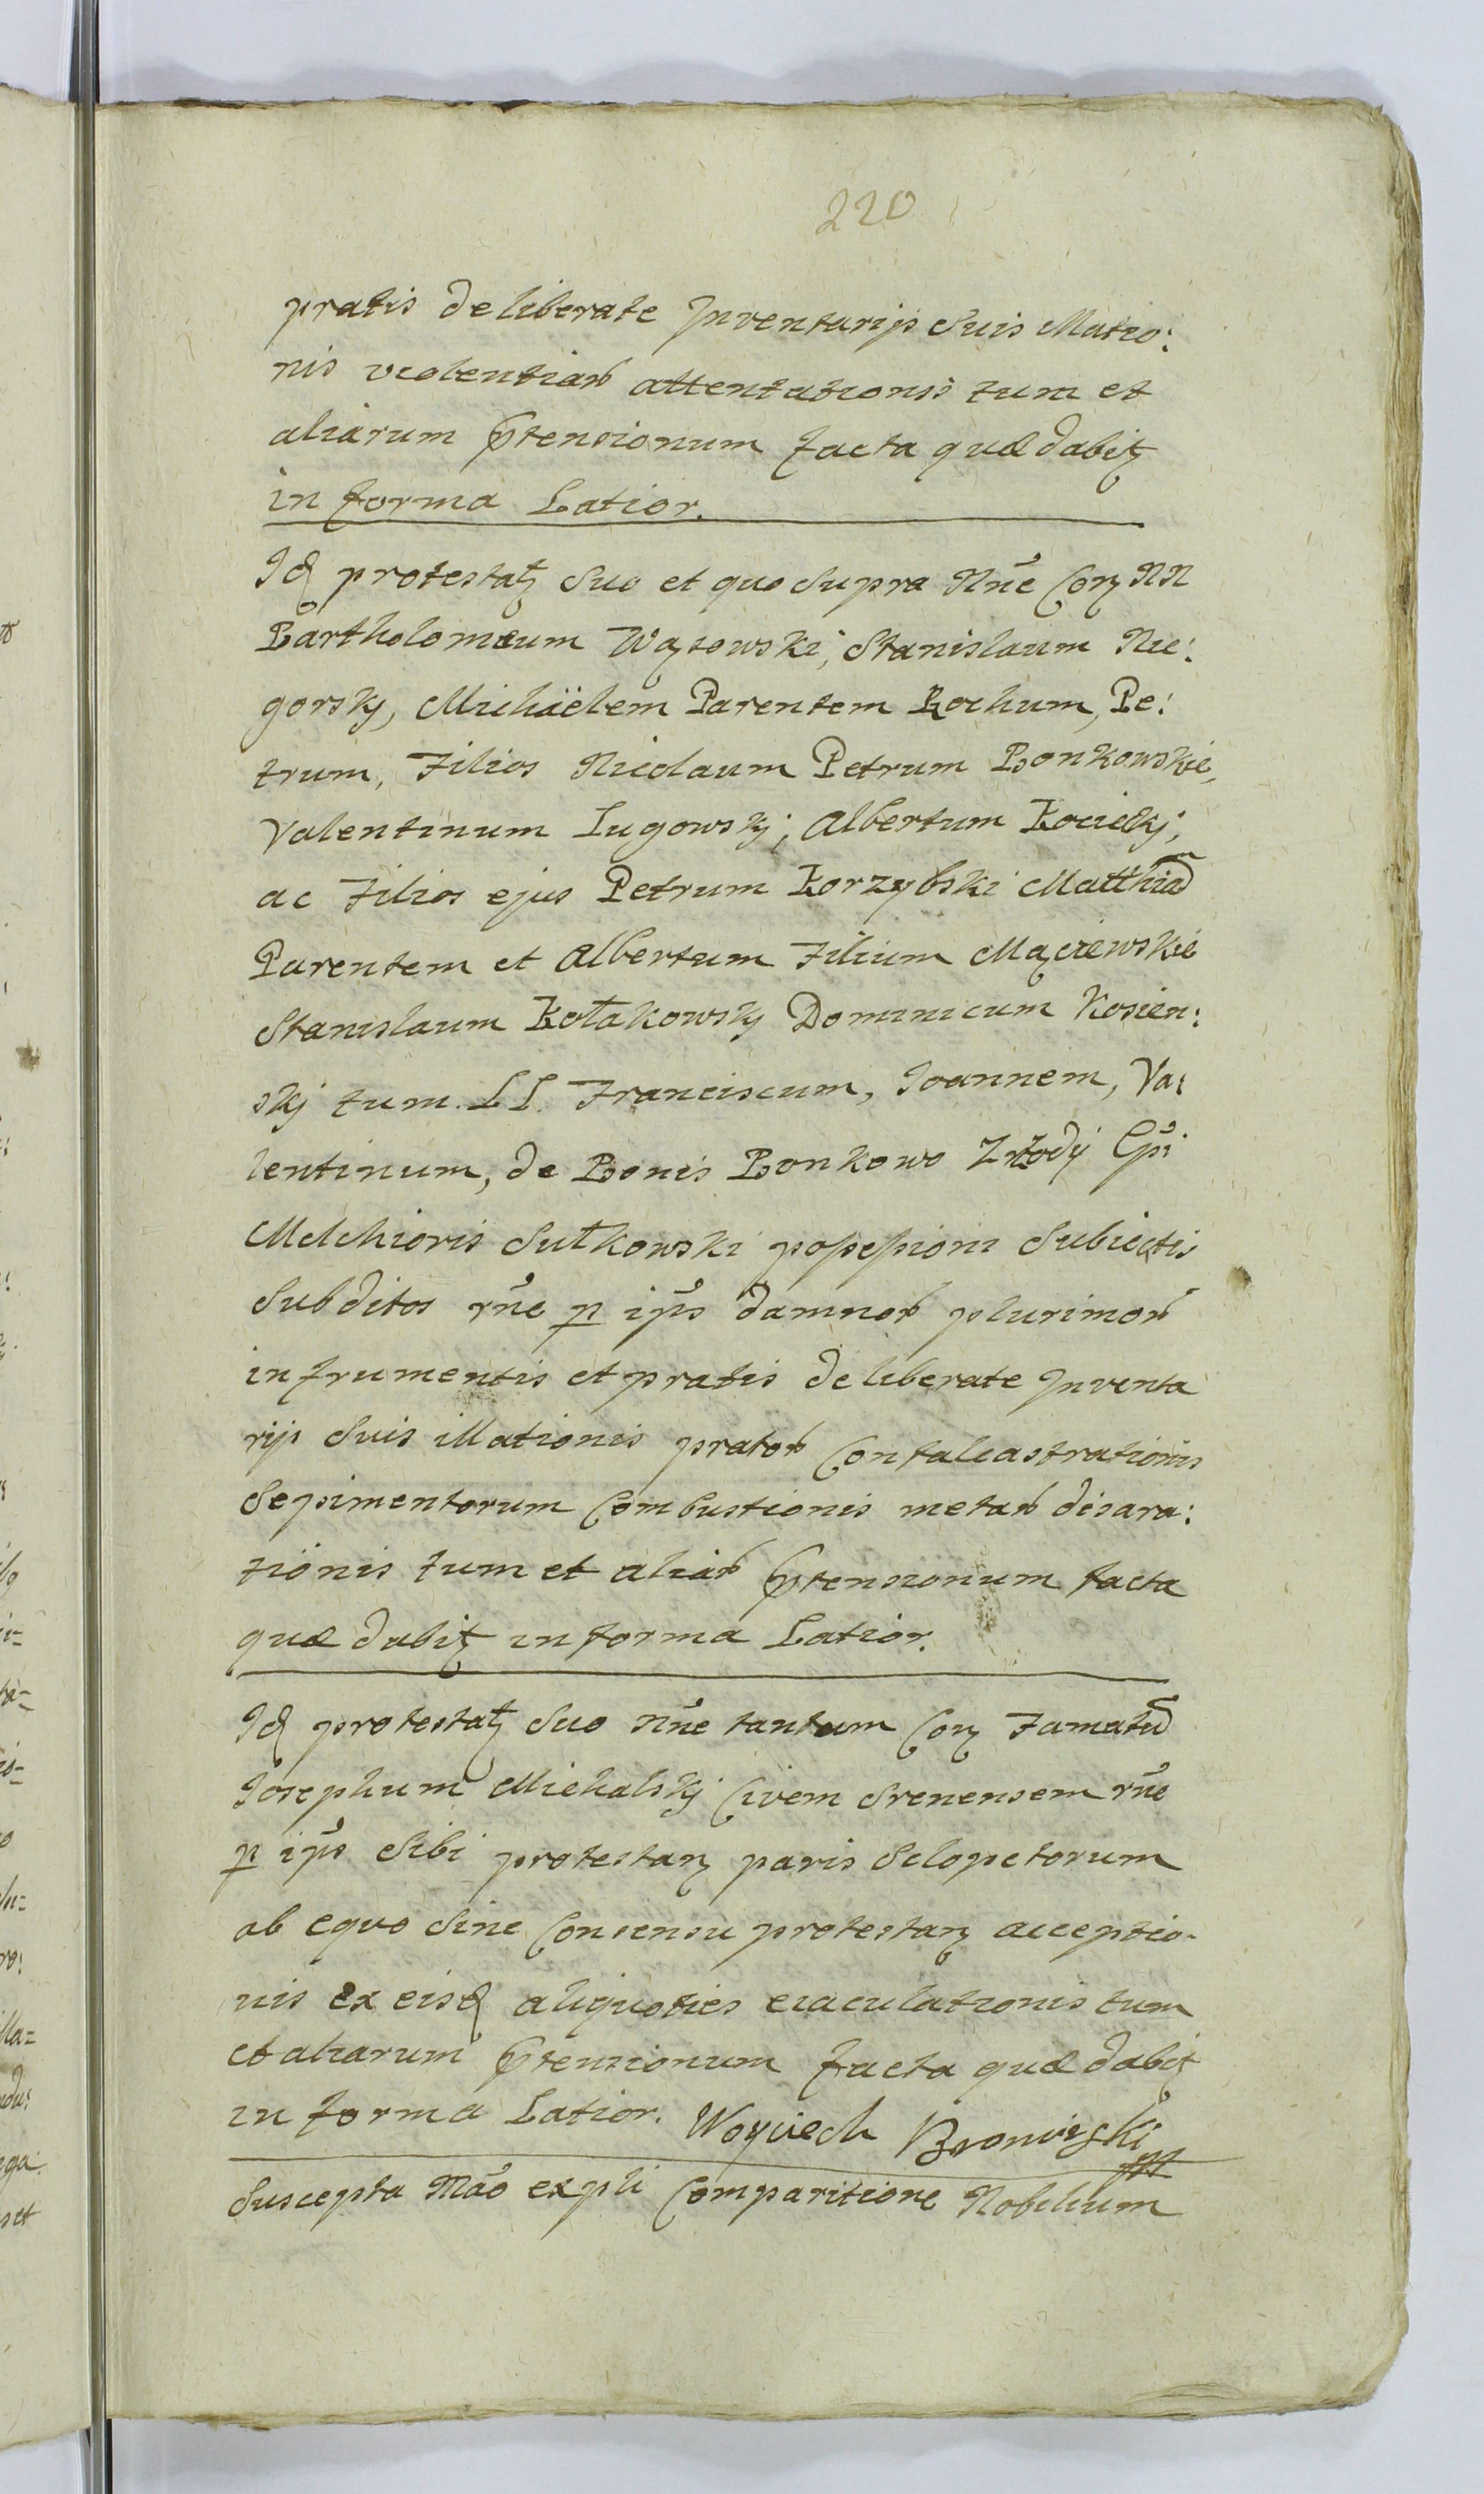 220
pratis deliberate Inventarijs Suis Illatio:
nis violentiar attentationis tum et
aliarum Prtensionum facta quæ dabit
in forma Latior.
Id protestat Suo et quo Supra Nne Con NN
Bartholomæum Wąsowski, Stanislaum Nie:
gorskj, Michäelem Parentem Rochum, Pe:
trum, Filios Nicolaum Petrum Bonkowskie,
Valentinum Lugowskj, Albertum Kocielkj,
ac Filios ejus Petrum Korzybski Matthia
Parentem et Albertum Filium Mączewskie
Stanislaum Kołakowskj Dominicum Kosien:
skj tum LL. Franciscum, Joannem, Va:
lentinum, de Bonis Bonkowo Zrzody Gsi
Melchioris Sułkowski possessioni Subiectis
Subditos rne p ips damnor plurimor
in frumentis et pratis deliberate Inventa
rijs Suis illationis prator Confalcastrationis
Sepimentorum Combustionis metar disara:
tionis tum et aliar Prtensionum facta
quæ dabit in forma Latior.
Id protestat Suo Nne tantum Con Famatu
Josephum Michalskj Civem Srenensem rne
p ips Sibi protestan paris Sclopetorum
ab equo Sine Consensu protestan acceptio-
nis ex eisd aliquoties eiaculationis tum
et aliarum Prtensionum facta quæ dabit
in forma Latior. Woyciech Bromirski
Suscepta Mao expli Comparitione Nobilium